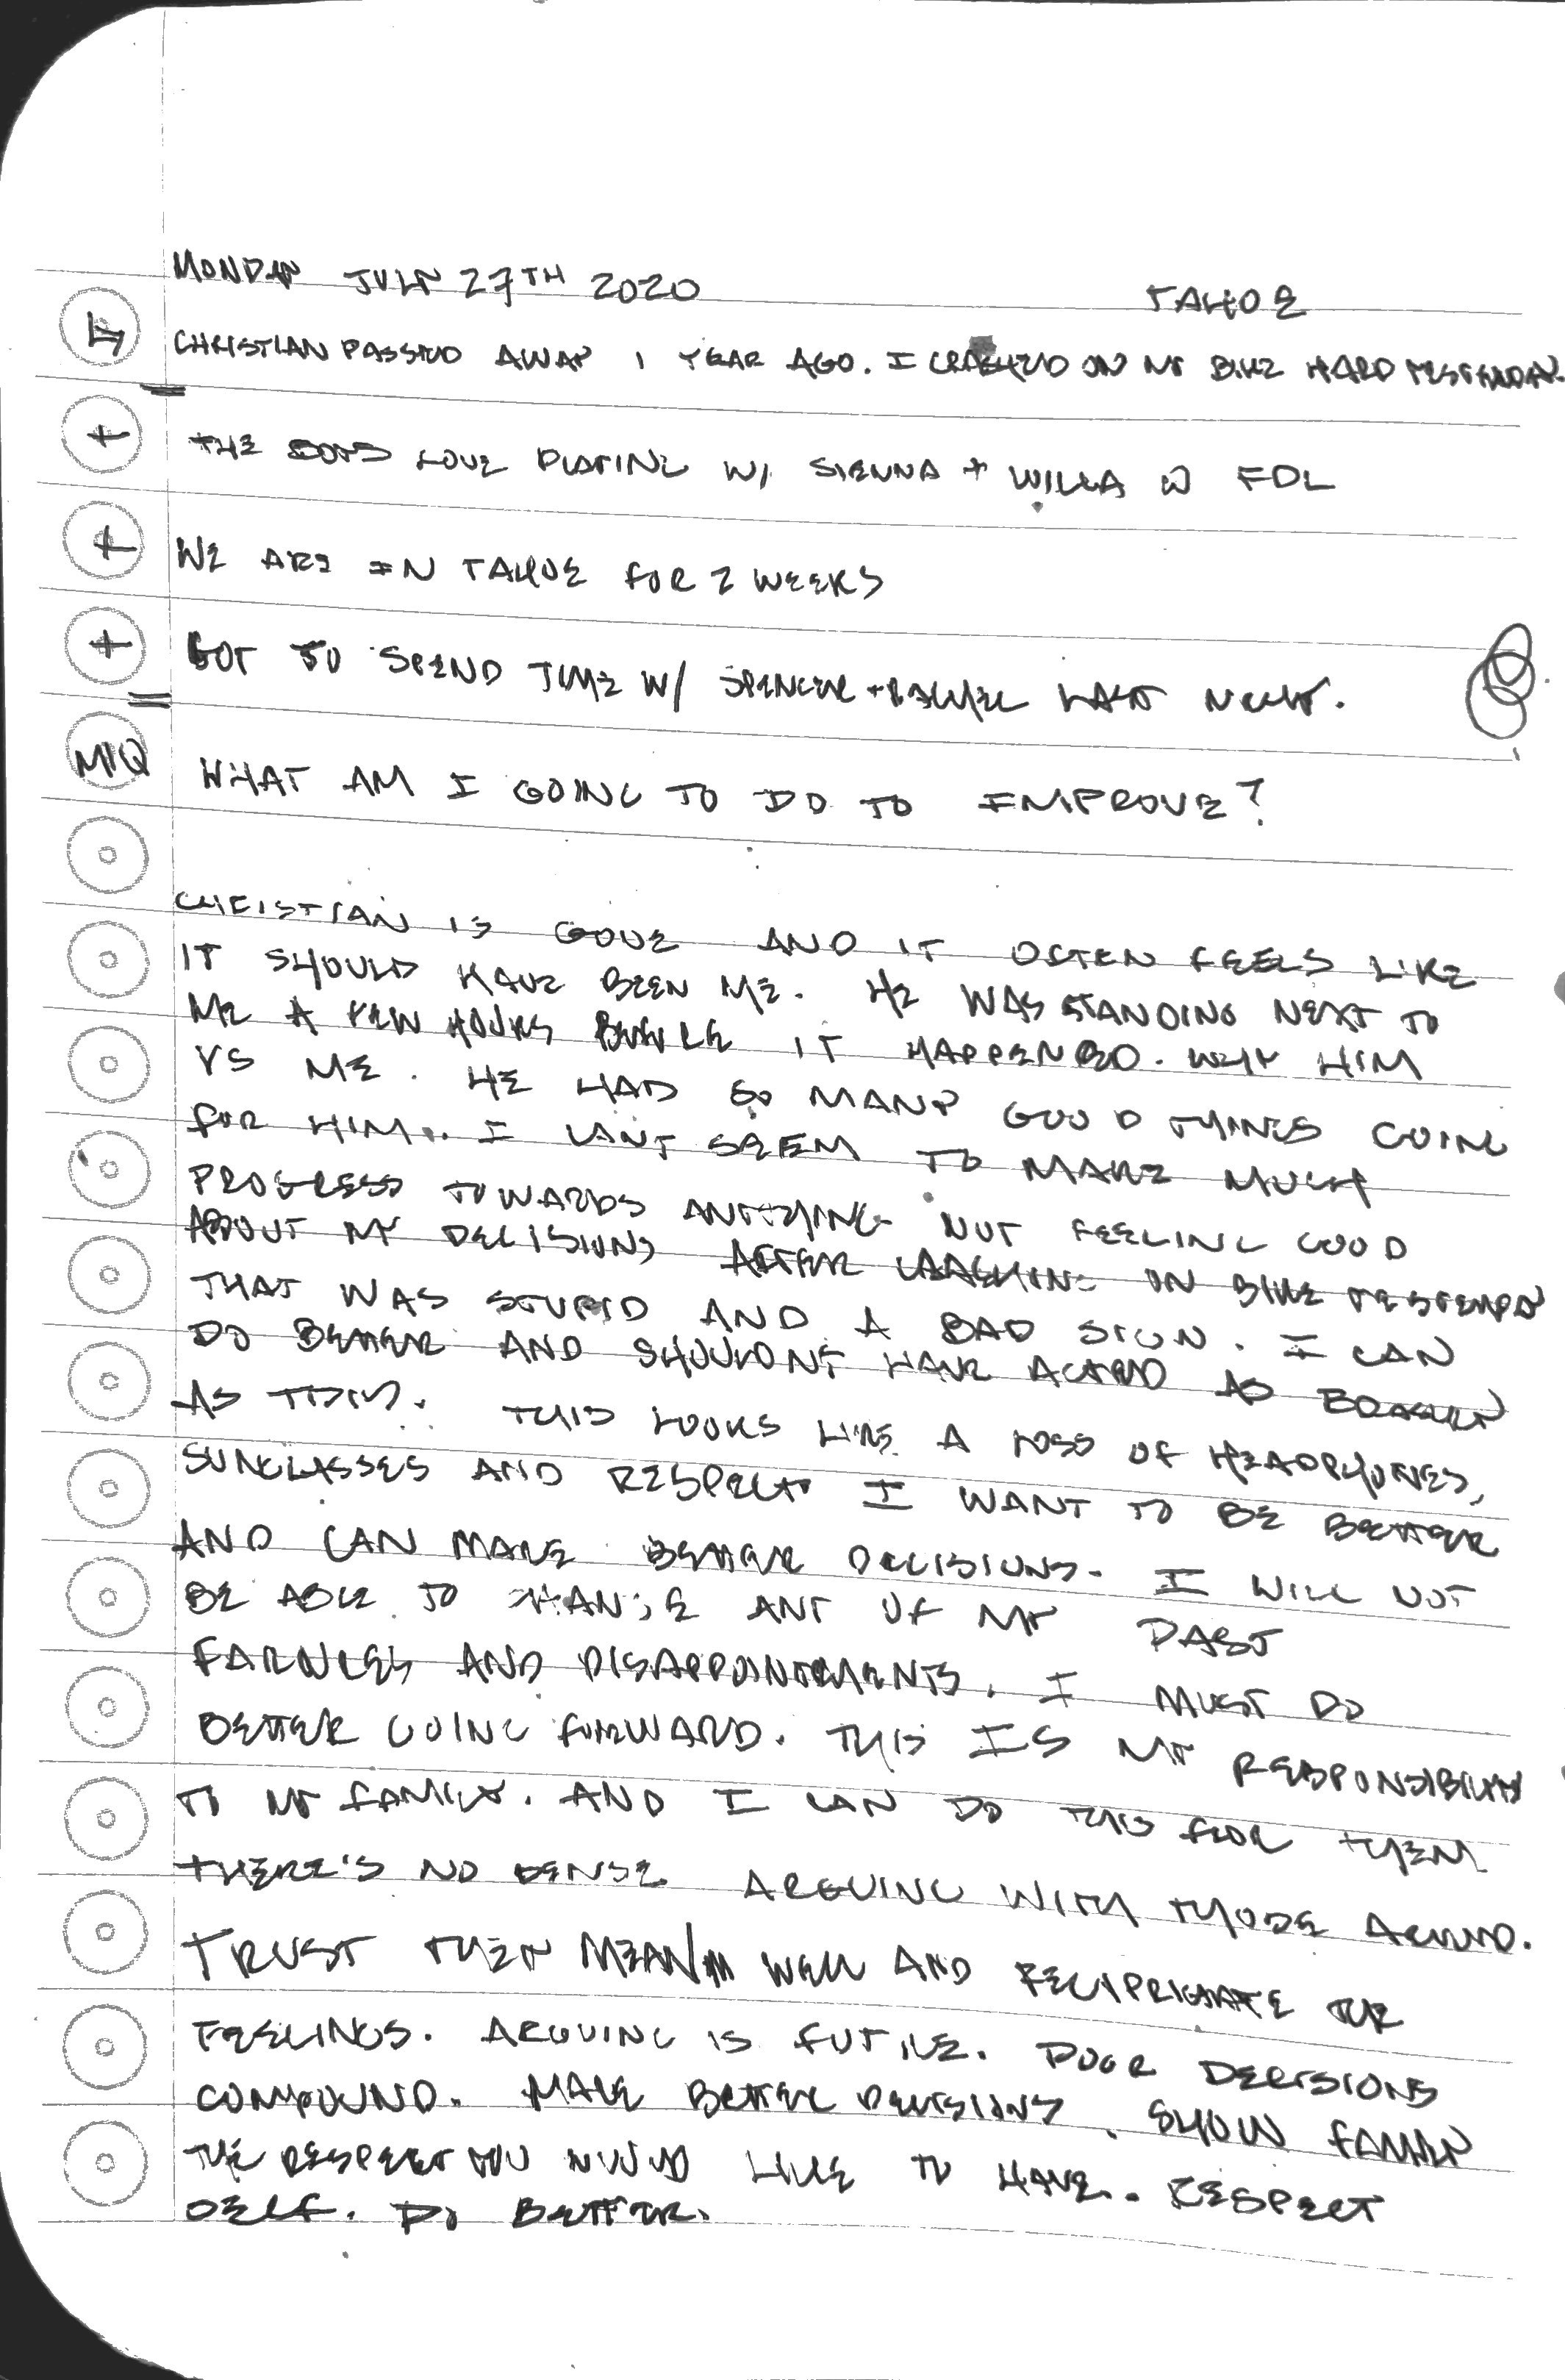 MONDAY JULY 27TH 2020 TAHOE
CHRISTIAN PASSED AWAY 1 YEAR AGO. I CRASHED ON MY BIKE HARD YESTERDAY.
+ THE BOYS LOVE PLAYING W/ SIENNA + WILLA @ FDL
+ WE ARE IN TAHOE FOR 2 WEEKS
+ GOT TO SPEND TIME W/ SPENCER + LAST NIGHT.
MIQ WHAT AM I GOING TO DO TO IMPROVE?
CHRISTIAN IS GONE AND IT OFTEN FEELS LIKE
IT SHOULD HAVE BEEN ME. HE WAS STANDING NEXT TO
ME A FEW HOURS BEFORE IT HAPPENED. WHY HIM
VS ME. HE HAD SO MANY GOOD THINGS GOING
FOR HIM. I CANT SEEM TO MAKE MUCH
PROGRESS TOWARDS ANYTHING. NOT FEELING GOOD
ABOUT MY DECISIONS AFTER CRASHING ON BIKE YESTERDAY
THAT WAS STUPID AND A BAD SIGN. I CAN
DO BETTER AND SHOULDNT HAVE ACTED AS
AS THIS. THIS LOOKS LIKE A LOSS OF HEADPHONES,
SUNGLASSES AND RESPECT. I WANT TO BE BETTER
AND CAN MAKE BETTER DECISIONS. I WILL NOT
BE ABLE TO CHANGE ANY OF MY PAST
FAILURES AND DISAPPOINTMENTS. I MUST DO
BETTER GOING FORWARD. THIS IS MY RESPONSIBILITY
TO MY FAMILY. AND I CAN DO THIS FOR THEM
THERE'S NO SENSE ARGUING WITH THOSE AROUND.
TRUST THEY MEAN WELL AND RECIPRICATE THE
FEELINGS. ARGUING IS FUTILE. POOR DECISIONS
COMPOUND. MAKE BETTER DECISIONS. SHOW FAMILY
THE RESPECT YOU WOULD LIKE TO HAVE. RESPECT
SELF. DO BETTER.